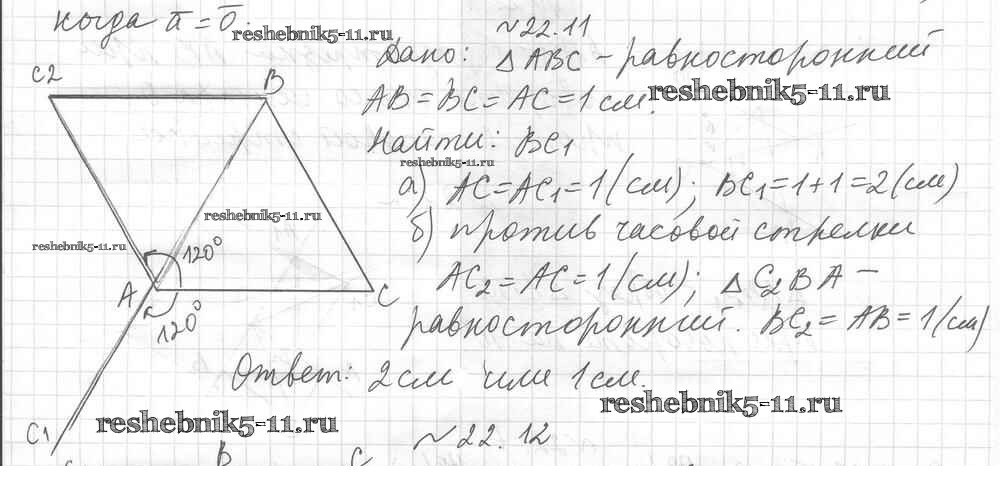 когда a̅ = 0̅.
reshebnik5-11.ru
№22.11
Дано: △ABC – равносторонний
AB = BC = AC = 1 см.
reshebnik5-11.ru
Найти: BC1
reshebnik5-11.ru
а) AC = AC1 = 1 (см); BC1 = 1+1 = 2 (см)
б) против часовой стрелки
AC2 = AC = 1 (см); △C2BA –
равносторонний. BC2 = AB = 1 (см)
C2
B
reshebnik5-11.ru
reshebnik5-11.ru
120°
A
C
120°
C1
Ответ: 2 см или 1 см.
reshebnik5-11.ru
reshebnik5-11.ru
№22.12
B
C